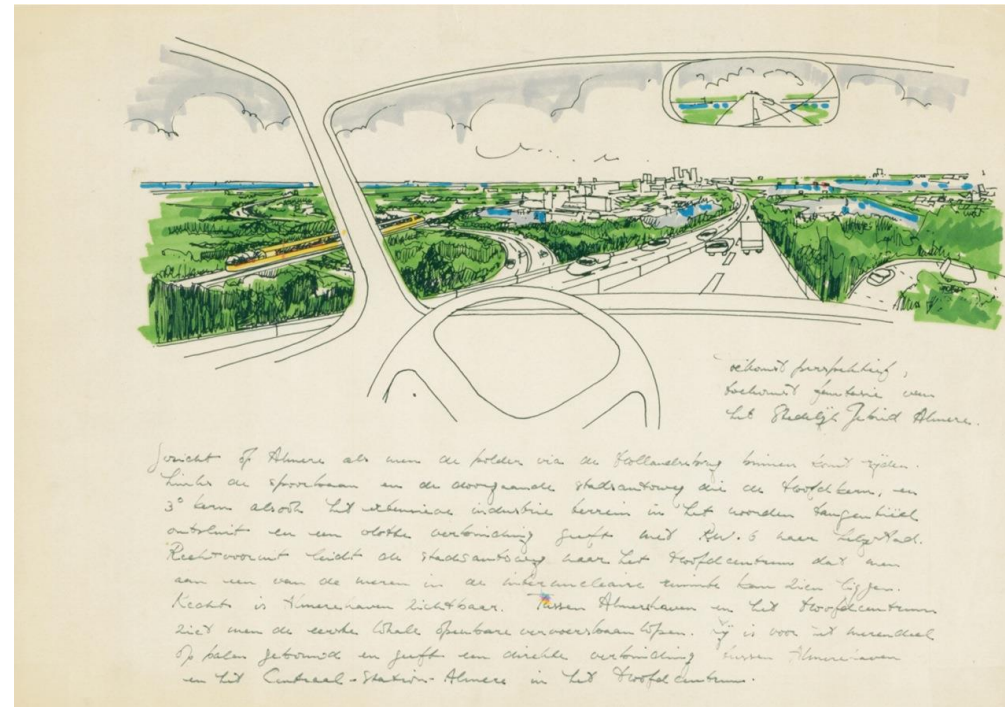 toekomst perspektief,
toekomst fantasie van
het Stedelijk Gebied Almere.
Gezicht op Almere als men de polder via de Hollandsebrug binnen komt rijden.
Links de spoorbaan en de doorgaande stadsautoweg die de Hoofdkern, en
3e kern alsook het extensieve industrie terrein in het noorden tangentieel
ontsluit en een vlotte verbinding geeft met RW. 6 naar Lelystad.
Rechtvooruit leidt de stadsautoweg naar het Hoofdcentrum dat men
aan een van de meren in de internucleaire ruimte kan zien liggen.
Rechts is Almerehaven zichtbaar. Tussen Almerehaven en het Hoofdcentrum
ziet men de eerste lokale openbare vervoersbaan lopen. Zij is voor het merendeel
op palen gebouwd en geeft een direkte verbinding tussen Almerehaven
en het Centraal-Station-Almere in het Hoofdcentrum.